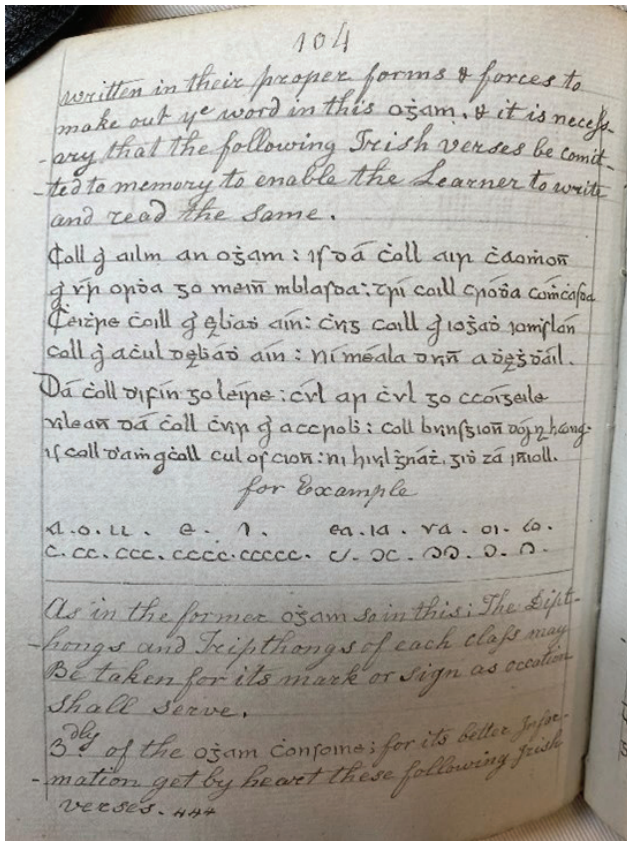 104
written in their proper forms & forces to
make out yᵉ word in this oġam, & it is necess-
-ary that the following Irish verses be comit-
-ted to memory to enable the Learner to write
and read the same.
Ċoll g̀ ailm an oġam : is dá ċoll air ċaoṁoñ
g̀ orḋa go meiñ mblasda : trí coill cróḋa cúmċasda
Ċeiṫre ċoill g̀ ain : coill g̀ iogaḋ iomslán
coll g̀ aċul ain : ní méala dvñ a
Dá ċoll disín go leire : cv́l ar ċv́l go ccóigeile
vileañ dá ċoll cvir g̀ : coll bvinsgioñ
is coll cul os cion : ni ġnáṫ, giḋ zá iñioll.
for Example
a . o . u . e . i . ea . ia . va . oi . ao .
c . cc . ccc . cccc . ccccc .
As in the former oġam so in this; The Dipt-
-hongs and Tripthongs of each class may
Be taken for its mark or sign as occation
shall serve.
3dly. of the oġam Consoine; for its better Infor-
-mation get by heart these following Irish
verses.